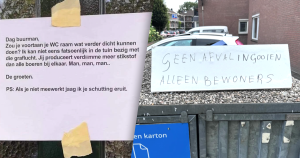 Dag buurman.
Zou je voortaan je WC raam wat verder dicht kunnen
Doen? Ik kan niet eens fatsoenlijk in de tuin bezig met
die graflucht. Jij produceert verdimme meer stikstof
dan alle boeren bij elkaar. Man, man, man..
De groeten.
PS: Als je niet meewerkt jaag ik je schutting eruit.
GEEN AFVAL INGOOIEN
ALLEEN BEWONERS
en karton